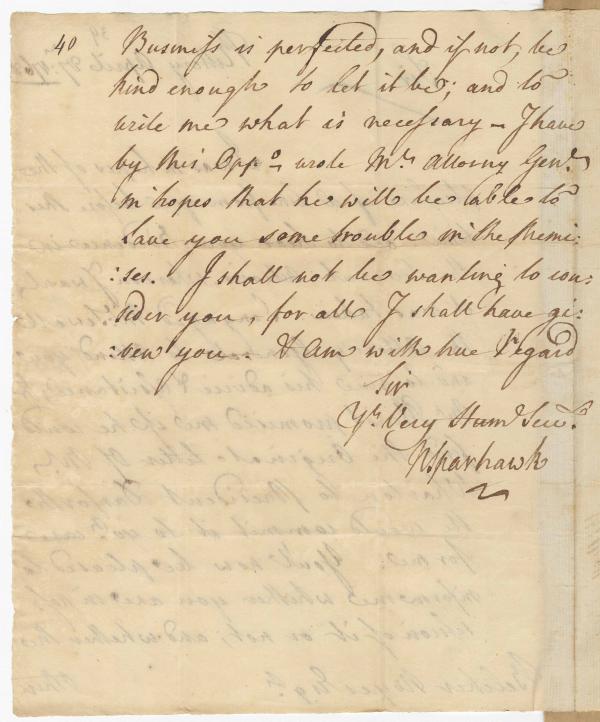 40
Business is perfected, and if not, be
kind enough to let it be; and to
write me what is necessary – I have
by this Oppo. wrote Mr. Attorny Genl.
in hopes that he will be able to
Save you some trouble in the Premi-
:ses. I shall not be wanting to con-
sider you, for all I shall have gi:
:ven you. & Am with true Regard
Sir
Yr. Very Hume Servt.
NSparhawk